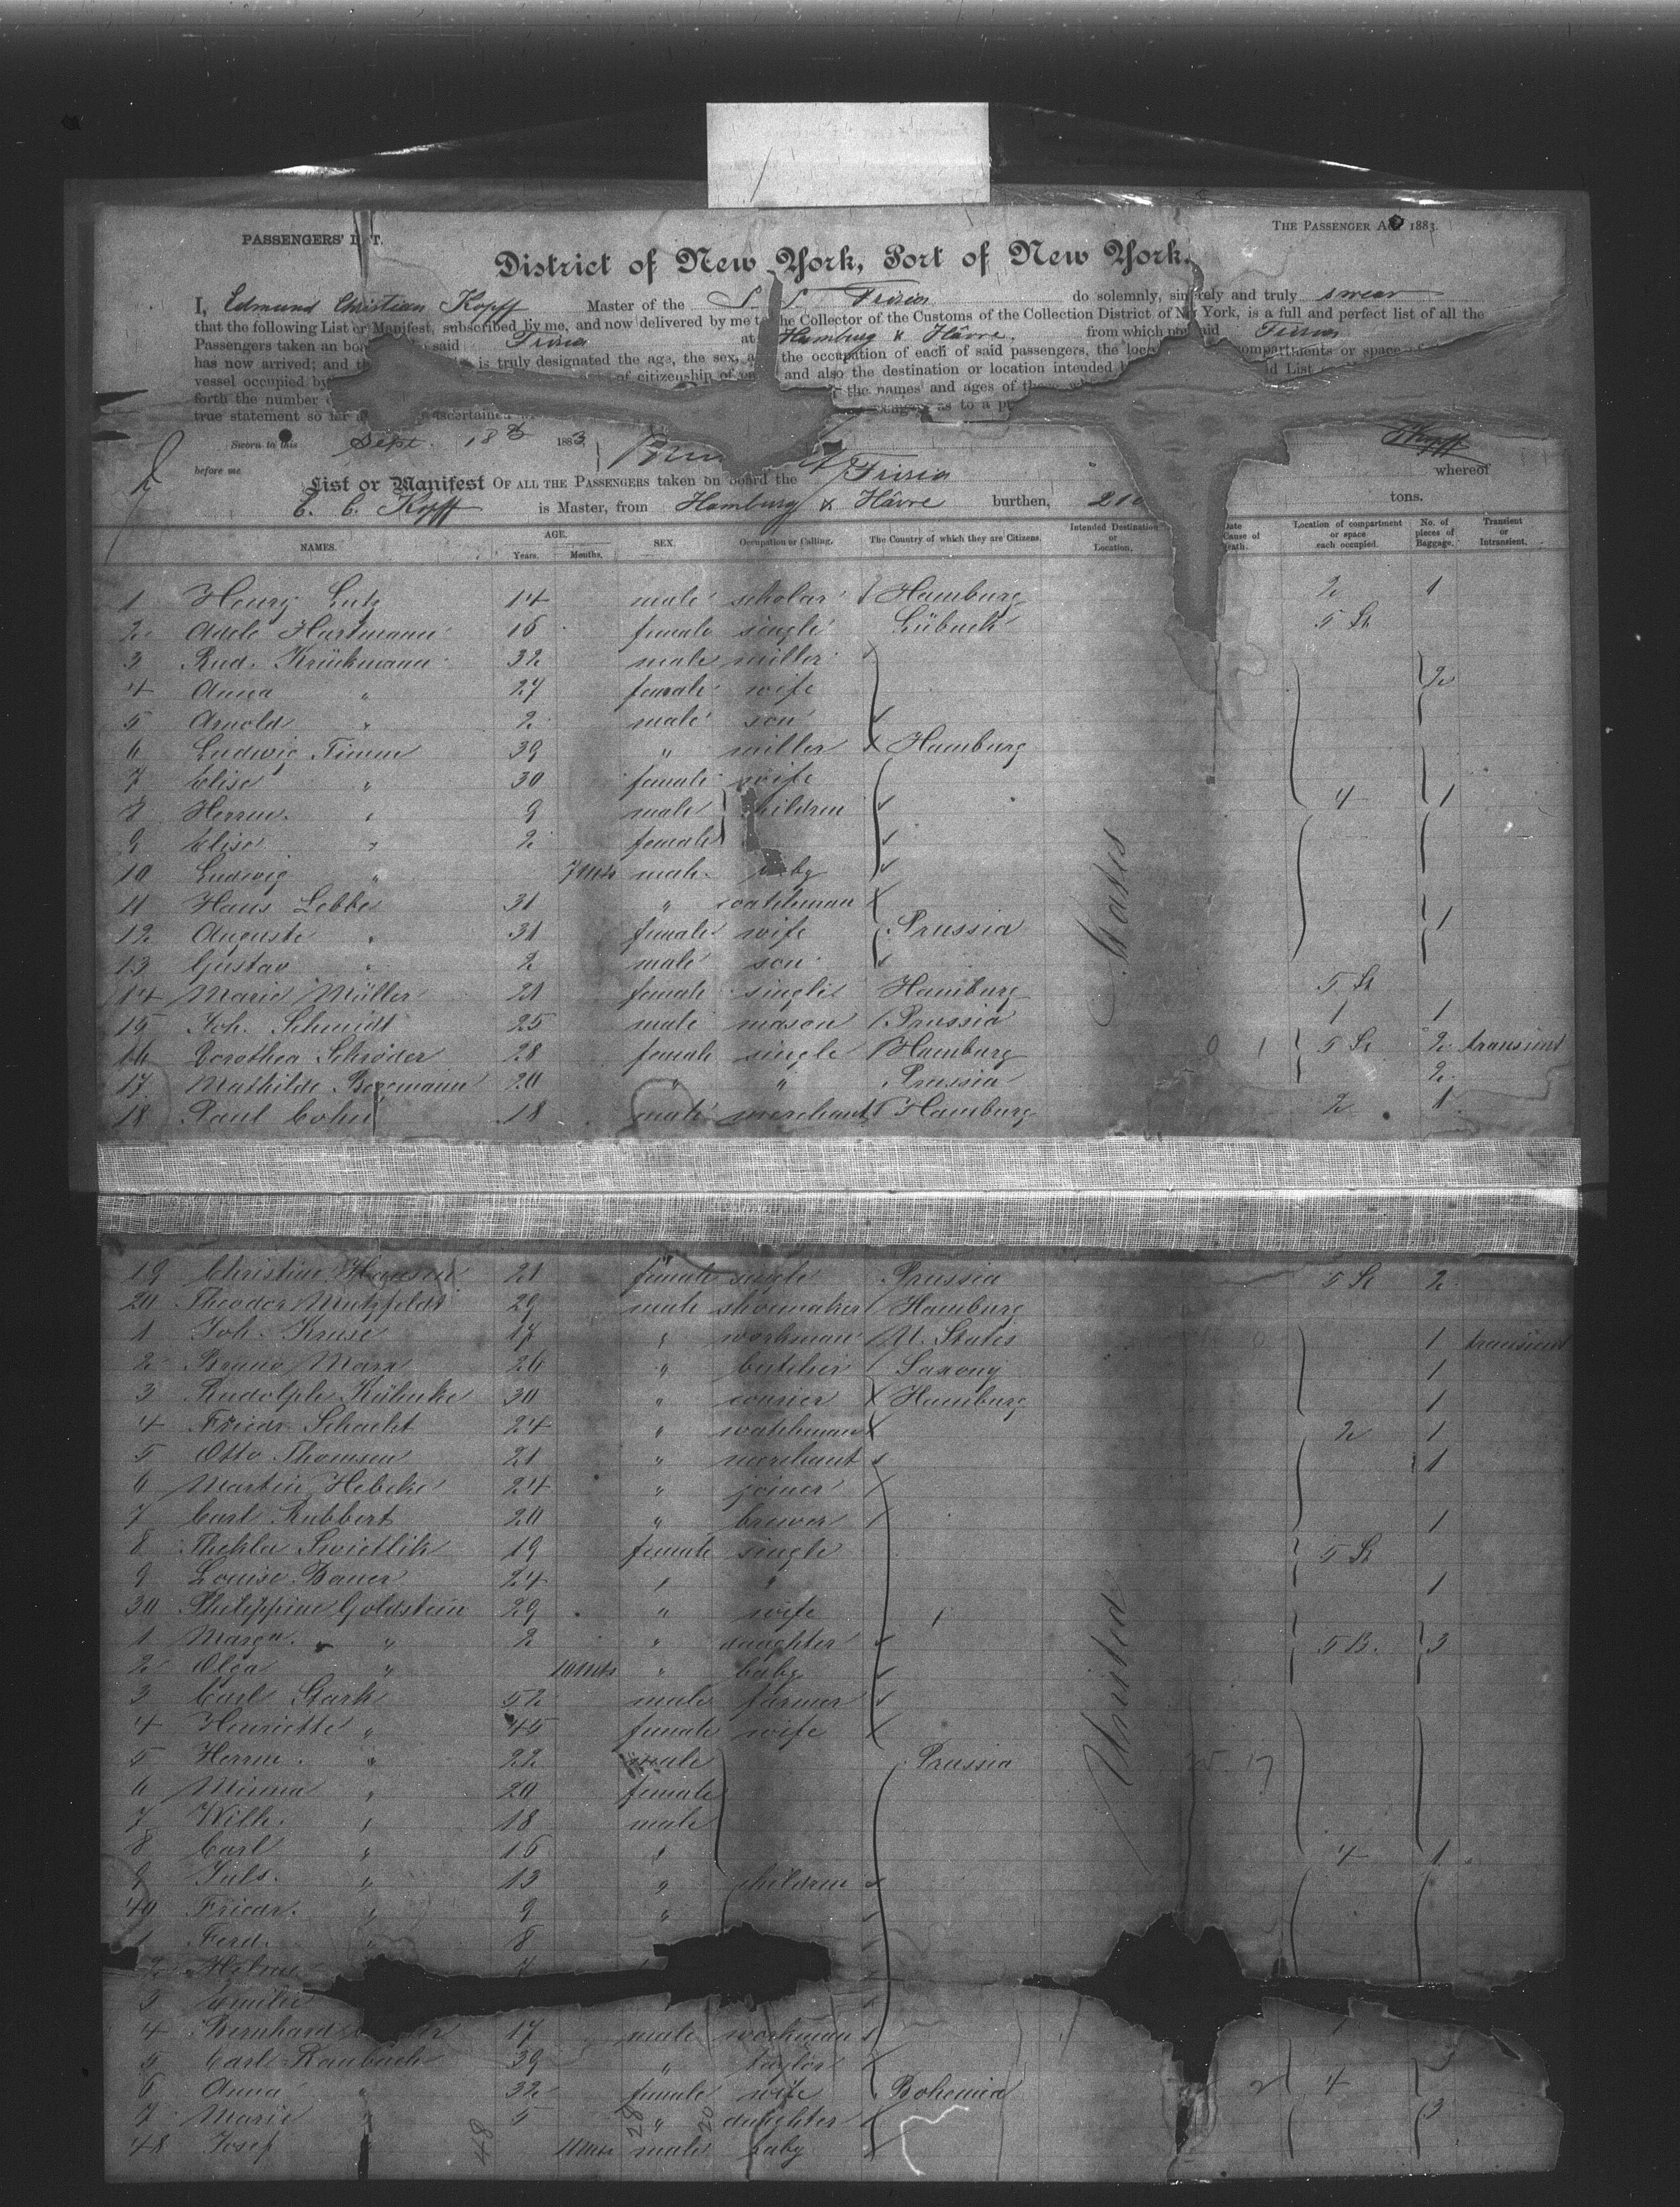 PASSENGERS' LIST.
THE PASSENGER ACT 1883.
District of New York, Port of New York.
I, Edmund Christian Kopff Master of the S S Frisia do solemnly, sincerely and truly swear
that the following List or Manifest, subscribed by me, and now delivered by me to the Collector of the Customs of the Collection District of New York, is a full and perfect list of all the
Passengers taken on board said Frisia at Hamburg & Hâvre. from which port said Frisia
has now arrived; and is truly designated the age, the sex, the occupation of each of said passengers, the compartments or space
vessel occupied by of citizenship of and also the destination or location intended List
forth the number the names and ages of
true statement so far ascertained as to a
Sworn to this Sept. 18th 1883
before me
Kopff
List or Manifest OF ALL THE PASSENGERS taken on board the Frisia whereof
E. C. Kopff is Master, from Hamburg & Hâvre burthen, tons.
NAMES. AGE. Years. Months. SEX. Occupation or Calling. The Country of which they are Citizens. Intended Destination or Location. Date Cause of Death. Location of compartment or space each occupied. No. of pieces of Baggage. Transient or Intransient.
1 Henry Lutz 14 male scholar Hamburg 2 1
2 Adele Hartmann 16 female single Lübeck 5 St
3 Rud. Krückmann 32 male miller
4 Anna " 27 female wife 2
5 Arnold " 2 male son
6 Ludwig Timm 39 " miller Hamburg
7 Elise " 30 female wife
8 Herrm. " 9 male children 4 1
9 Elise " 2 female
10 Ludwig " 7 Mts male baby
11 Hans Lebbe 31 " watchman
12 Auguste " 31 female wife Prussia 1
13 Gustav " 2 male son
14 Marie Müller 21 female single Hamburg 5 St
15 Joh. Schmidt 25 male mason Prussia 1 1
16 Dorothea Schröder 28 female single Hamburg 0 1 5 St 2 transient
17 Mathilde Bergmann 20 " " Prussia 2
18 Paul Cohn 18 male merchant Hamburg 2 1
19 Christine Hansen 21 female single Prussia 5 St 2
20 Theodor Mutzfeldt 29 male shoemaker Hamburg
1 Joh. Kruse 17 " workman U. States 0 1 transient
2 Bruno Marx 26 " butcher Saxony 1
3 Rudolph Kühnke 30 " courier Hamburg 1
4 Friedr. Schacht 24 " watchman 2 1
5 Otto Thomsen 21 " merchant 1
6 Martin Hebeke 24 " joiner
7 Carl Rubbert 20 " brewer 1
8 Thekla Swietlik 19 female single 5 St
9 Louise Bauer 24 " " 1
30 Philippine Goldstein 29 " wife
1 Marga. " 2 " daughter 5 B. 3
2 Olga " 10 Mts " baby
3 Carl Stark 52 male farmer
4 Henriette " 45 female wife
5 Herrm. " 22 male Prussia 17
6 Minna " 20 female
7 Wilh. " 18 male
8 Carl " 16 " 4 1
9 Juls. " 13 " children
40 Friedr. " 9 "
1 Ferd. " 8
2 7
3 Emilie
4 Bernhard 17 male workman 1
5 Carl Raubach 39 " taylor 3
6 Anna " 32 female wife Bohemia 2 4
7 Marie " 5 " daughter 3
48 Josef 11 Mts male baby
United States
48 28 20